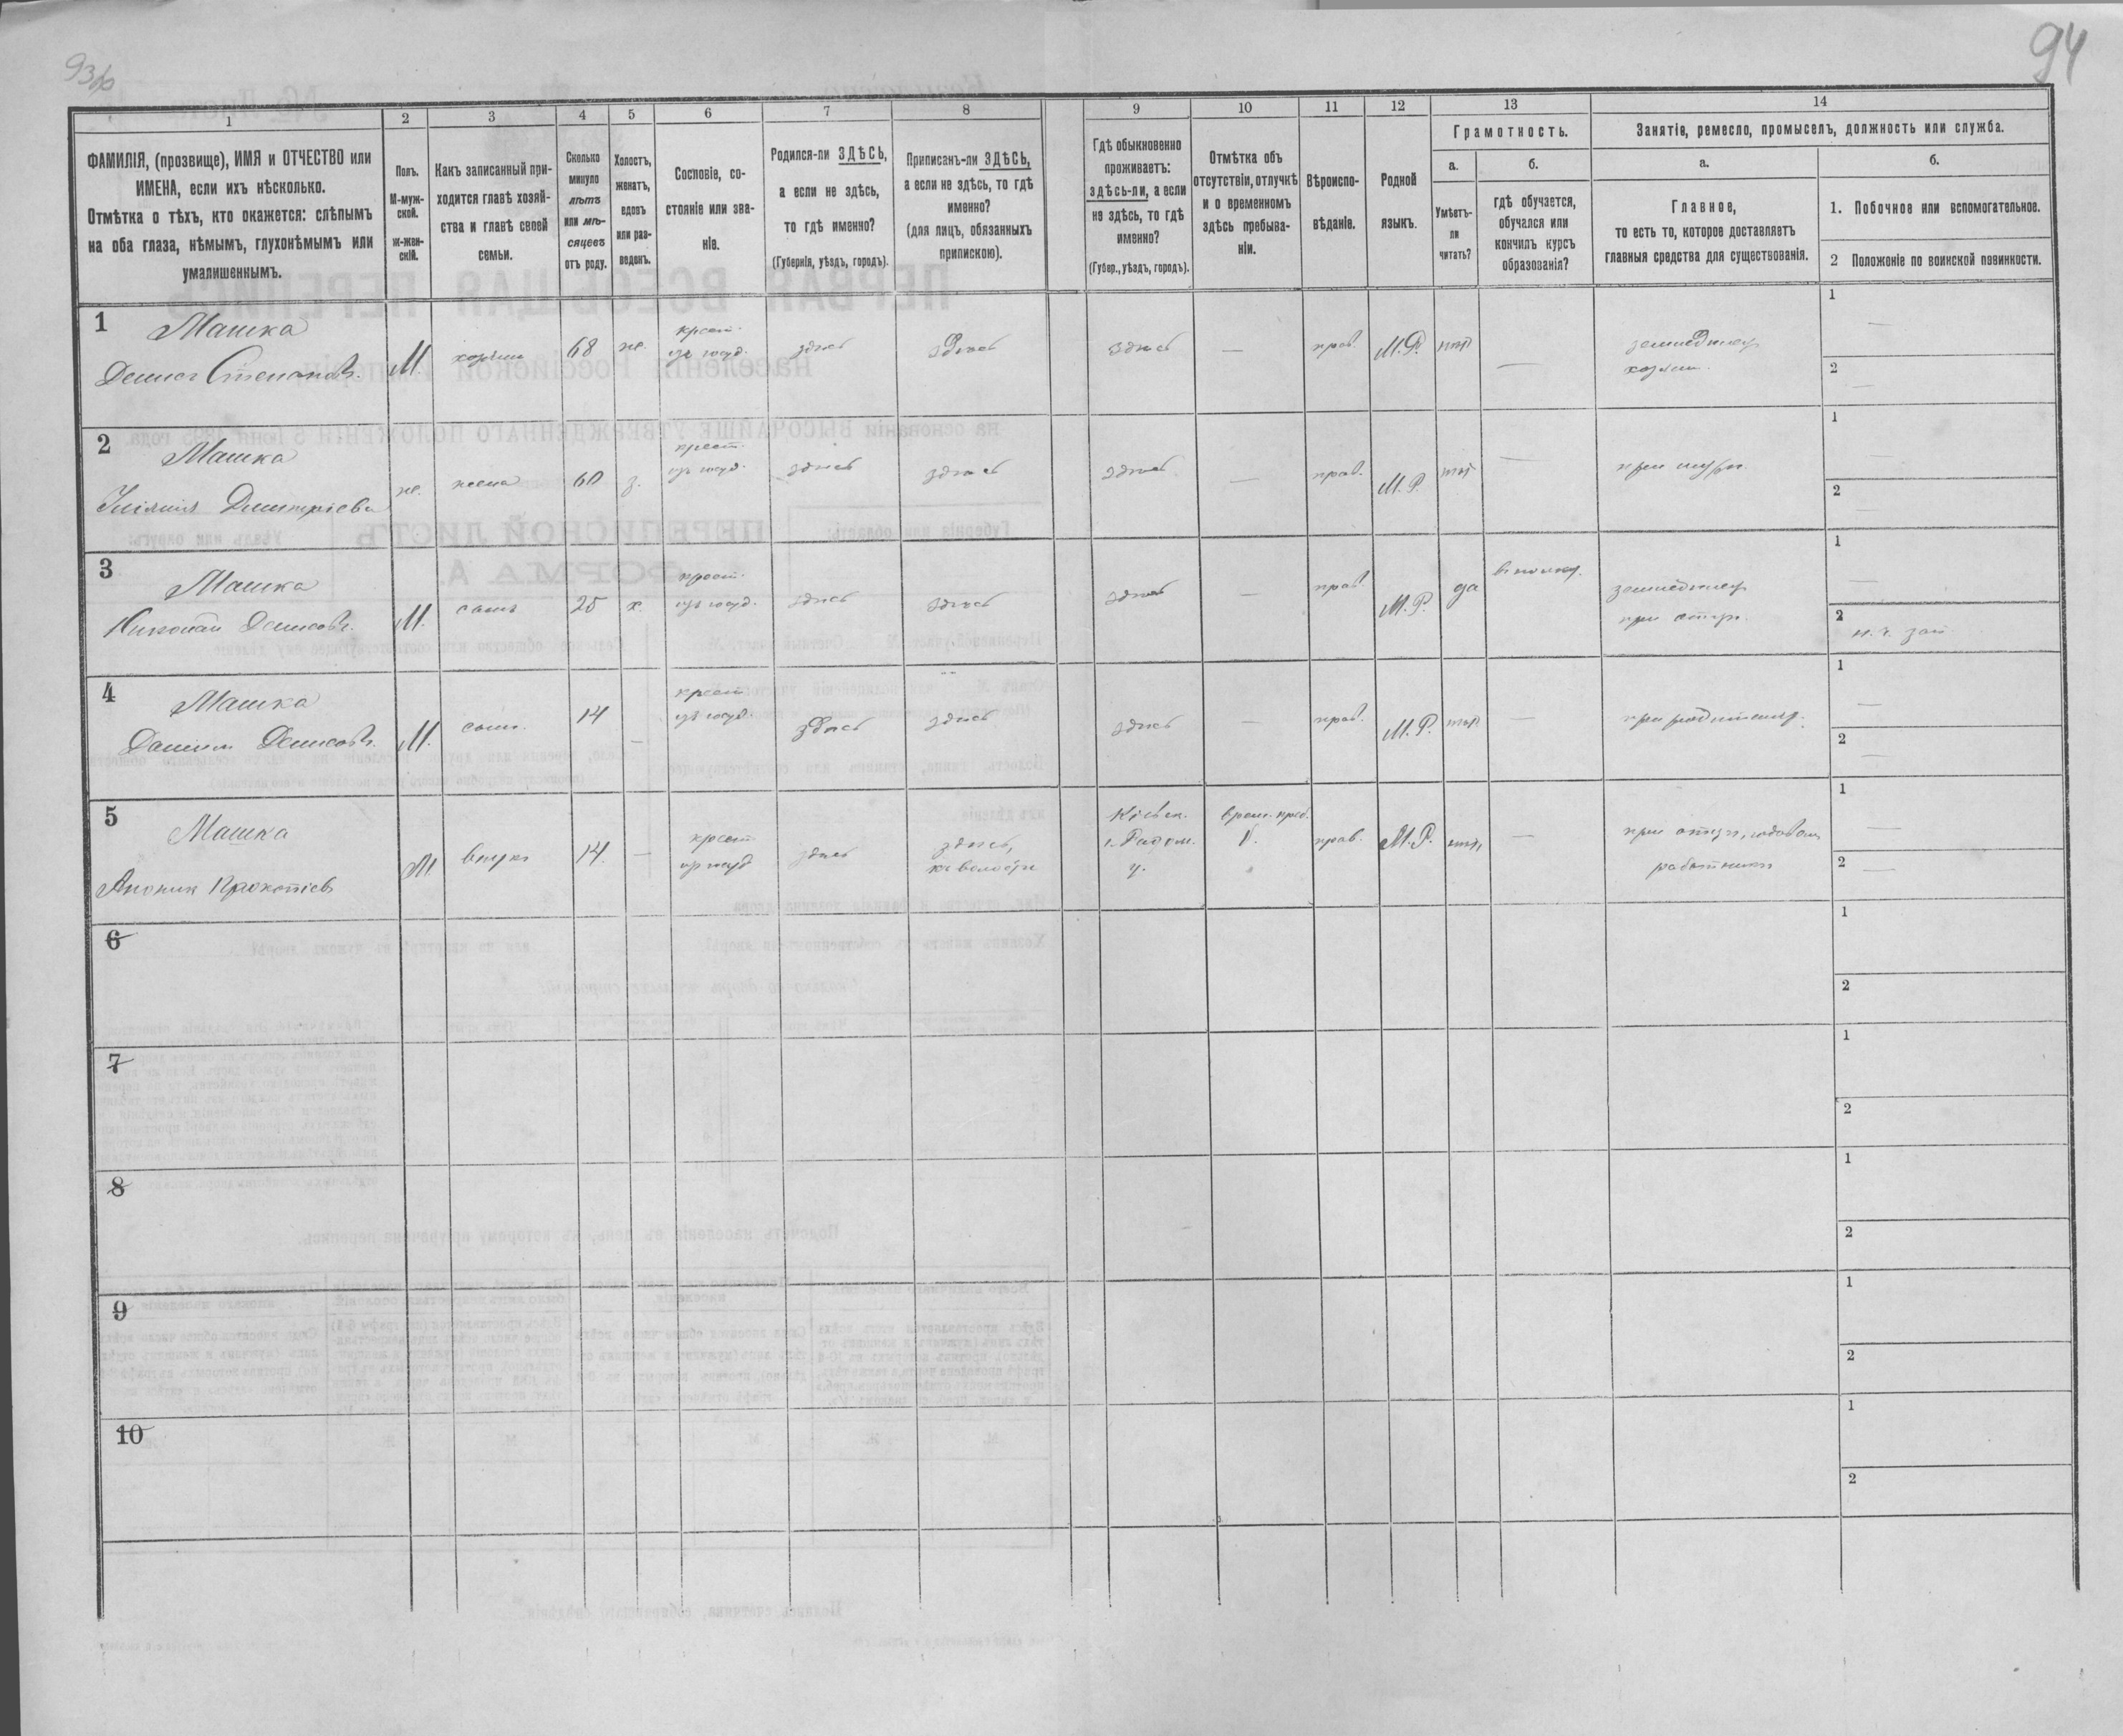 93об
94
1
2
3
4
5
6
7
8
9
10
11
12
13
14
ФАМИЛІЯ, (прозвище), ИМЯ и ОТЧЕСТВО или
ИМЕНА, если ихъ нѣсколько.
Отмѣтка о тѣхъ, кто окажется: слѣпымъ
на оба глаза, нѣмымъ, глухонѣмымъ или
умалишеннымъ.
Полъ.
М-муж-
ской.
Ж-жен-
скій.
Какъ записанный при-
ходится главѣ хозяй-
ства и главѣ своей
семьи.
Сколько
минуло
лѣтъ
или мѣ-
сяцевъ
отъ роду.
Холостъ,
женатъ,
вдовъ
или раз-
веденъ.
Сословіе, со-
стояніе или зва-
ніе.
Родился-ли ЗДѢСЬ,
а если не здѣсь,
то гдѣ именно?
(Губернія, уѣздъ, городъ).
Приписанъ-ли ЗДѢСЬ,
а если не здѣсь, то гдѣ
именно?
(для лицъ, обязанныхъ
припискою).
Гдѣ обыкновенно
проживаетъ:
здѣсь-ли, а если
не здѣсь, то гдѣ
именно?
(Губер., уѣздъ, городъ).
Отмѣтка объ
отсутствіи, отлучкѣ
и о временномъ
здѣсь пребыва-
ніи.
Вѣроиспо-
вѣданіе.
Родной
языкъ.
Грамотность.
а.
б.
Умѣетъ-
ли
читать?
гдѣ обучается,
обучался или
кончилъ курсъ
образованія?
Занятіе, ремесло, промыселъ, должность или служба.
а.
б.
Главное,
то есть то, которое доставляетъ
главныя средства для существованія.
1. Побочное или вспомогательное.
2 Положеніе по воинской повинности.
1
Машка
Денисъ Степановъ.
М.
хозяинъ
68
же.
крест.
изъ госуд.
здѣсь
здѣсь
здѣсь
—
прав.
М.Р.
нѣтъ
—
земледѣлец
хозяин.
1
—
2
—
2
Машка
Дмитріева
же.
жена
60
з.
крест.
изъ госуд.
здѣсь
здѣсь
здѣсь
—
прав.
М.Р.
нѣт
—
при мужѣ.
1
—
2
—
3
Машка
Николай Денисовъ.
М.
сынъ
25
х.
крест.
изъ госуд.
здѣсь
здѣсь
здѣсь
—
прав.
М.Р.
да
земледѣлец
при отцѣ.
1
—
2
4
Машка
Даниил Денисовъ.
М.
сынъ.
14
—
крест.
изъ госуд.
здѣсь
здѣсь
здѣсь
—
прав.
М.Р.
нѣт
—
при родителях.
1
—
2
—
5
Машка
Прокопіевъ
М
внукъ
14.
—
крест.
изъ госуд
здѣсь
здѣсь,
къ волости
Кіевск.
г. Радом.
у.
врем. преб.
прав.
М.Р.
нѣт,
—
при отцѣ, годовой
работникъ
1
—
2
—
6
1
2
7
1
2
8
1
2
9
1
2
10
1
2